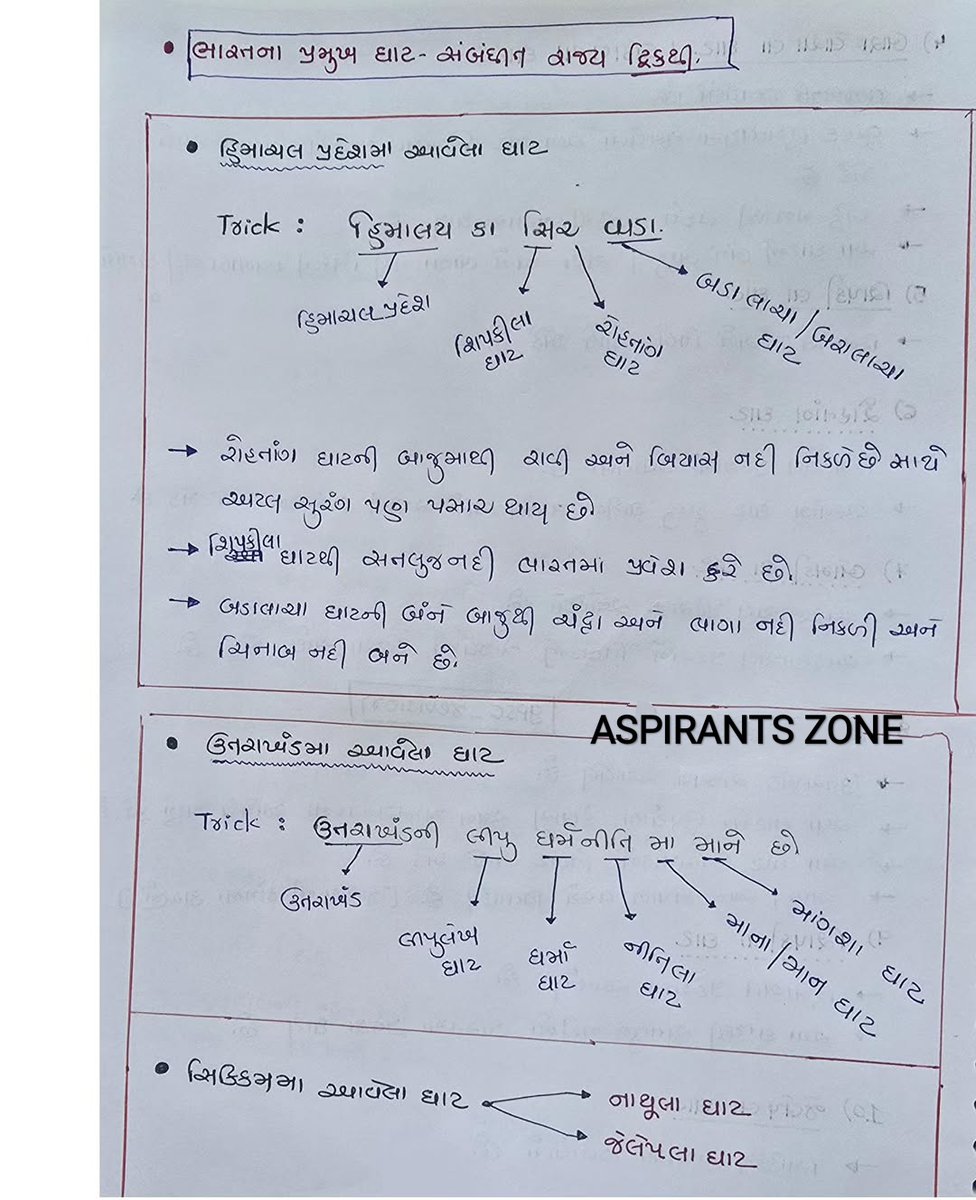 • ભારતના પ્રમુખ ઘાટ - સંબંધીત રાજ્ય ટ્રિકથી.
• હિમાચલ પ્રદેશમા આવેલા ઘાટ
Trick : હિમાલય કા સિર બાડા.
હિમાચલ પ્રદેશ
શિપકીલા ઘાટ
રોહતાંગ ઘાટ
બડાલાચા/બારાલાચા ઘાટ
→ રોહતાંગ ઘાટની બાજુમાથી રાવી અને બિયાસ નદી નિકળે છે સાથે
અટલ સુરંગ પણ પસાર થાય છે.
→ શિપકીલા ઘાટથી સતલુજ નદી ભારતમા પ્રવેશ કરે છે.
→ બડાલાચા ઘાટની બંને બાજુથી ચંદ્રા અને ભાગા નદી નિકળી અને
ચિનાબ નદી બને છે.
ASPIRANTS ZONE
• ઉતરાખંડમા આવેલા ઘાટ
Trick : ઉતરાખંડની લીપુ ધર્મનીતિ મા માને છે
ઉતરાખંડ
લીપુલેખ ઘાટ
ધર્મા ઘાટ
નીતિલા ઘાટ
માના/માન ઘાટ
માંગશા ઘાટ
• સિક્કિમમા આવેલા ઘાટ
નાથૂલા ઘાટ
જેલેપલા ઘાટ